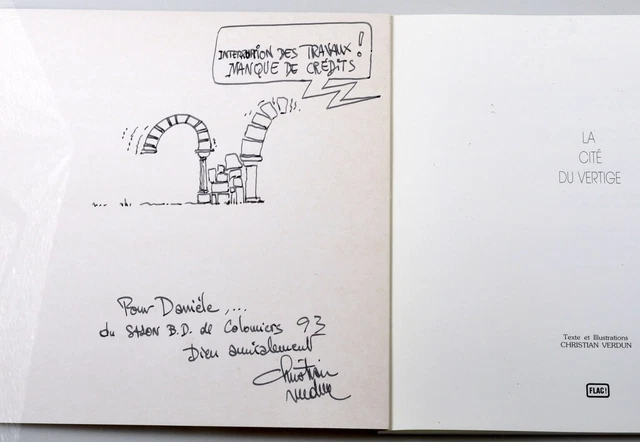 INTERRUPTION DES TRAVAUX!
MANQUE DE CRÉDITS
Pour Danièle,...
du SALON B.D. de Colomiers 93
Bien amicalement
Christian
Verdun
LA
CITÉ
DU VERTIGE
Texte et Illustrations
CHRISTIAN VERDUN
FLAC!